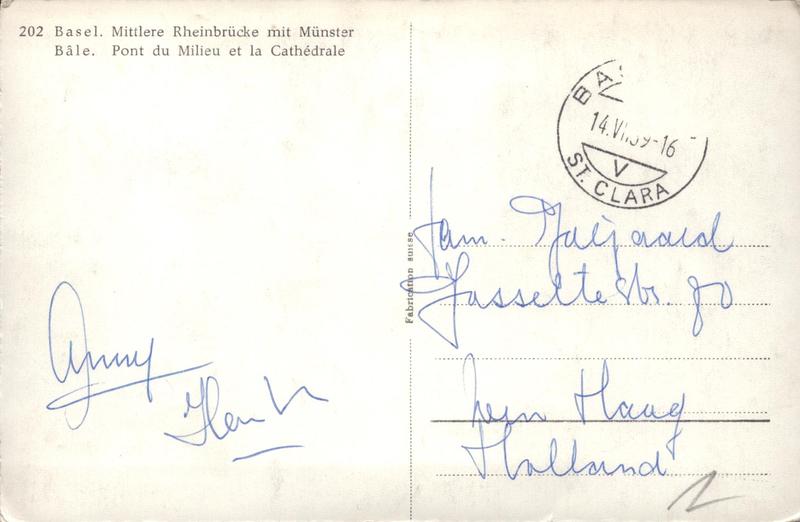 202 Basel. Mittlere Rheinbrücke mit Münster
Bâle. Pont du Milieu et la Cathédrale
BAS
14.VII.59-16
V
ST. CLARA
Fabrication suisse
Fam.
Hasseltestr. 80
Haag
Holland
Anny
Henk